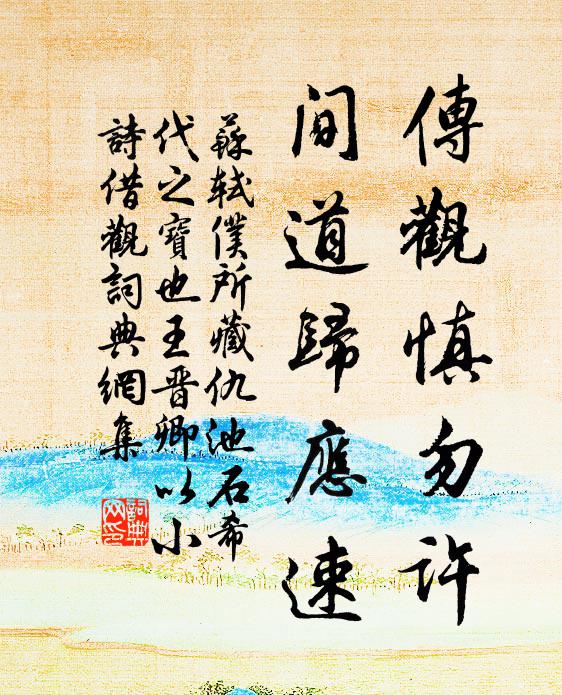 傳觀慎勿許
間道歸應速
蘇軾僕所藏仇池石希
代之寶也王晉卿以小
詩借觀詞典網集
詞典网印